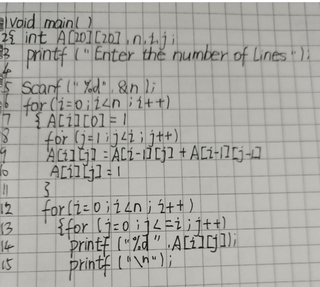 1 void main()
2 { int A[20][20], n, i, j;
3 printf ("Enter the number of lines");
4
5 Scanf ("%d", &n);
6 for(i=0;i<n;i++)
7 { A[i][0]=1
8 for (j=1;j<i;j++)
9 A[i][j]=A[i-1][j]+A[i-1][j-1]
10 A[i][j]=1
11 }
12 for(i=0;i<n;i++)
13 {for (j=0;j<=i;j++)
14 printf ("%d",A[i][j]);
15 printf ("\n");